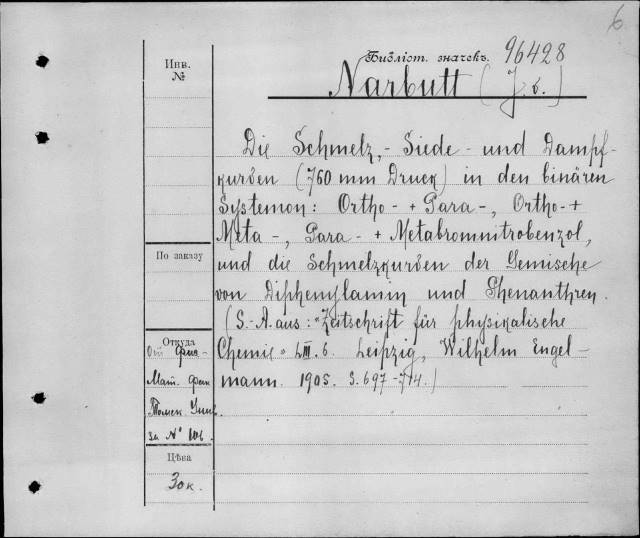 6
Инв.
№
Библіот. значекъ. 96428
Narbutt (J. v.)
Die Schmelz,- Siede - und Dampf-
kurven (760 mm Druck) in den binären
Systemen: Ortho- + Para-, Ortho-+
Meta -, Para - + Metabromnitrobenzol,
und die Schmelzkurven der Gemische
von Diphenylamin und Phenanthren.
(S.-A. aus: "Zeitschrift für physikalische
Chemie" LIII. 6. Leipzig, Wilhelm Engel-
mann. 1905. S. 697-714.)
По заказу
Откуда
От Физ-
Мат. Фак
Томск. Унив.
за № 106.
Цѣна
30 к.